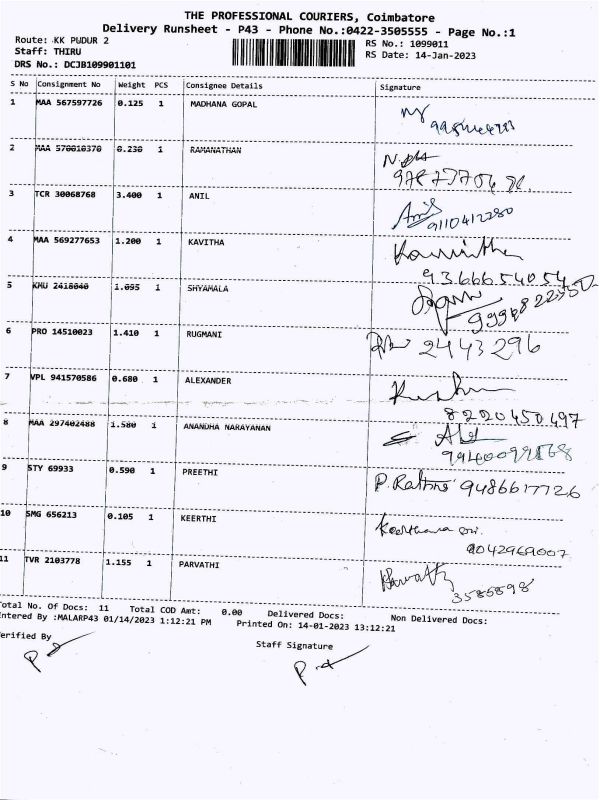 THE PROFESSIONAL COURIERS, Coimbatore
Delivery Runsheet - P43 - Phone No.:0422-3505555 - Page No.:1
Route: KK PUDUR 2
Staff: THIRU
DRS No.: DCJB109901101
RS No.: 1099011
RS Date: 14-Jan-2023
S No Consignment No Weight PCS Consignee Details Signature
1 MAA 567597726 0.125 1 MADHANA GOPAL
2 MAA 570010370 0.230 1 RAMANATHAN
3 TCR 30068768 3.400 1 ANIL
9110412780
4 MAA 569277653 1.200 1 KAVITHA
Kavvitha
9366654054
5 KMU 2418040 1.095 1 SHYAMALA
6 PRO 14510023 1.410 1 RUGMANI
2443296
7 VPL 941570586 0.680 1 ALEXANDER
8220450497
8 MAA 297402488 1.580 1 ANANDHA NARAYANAN
9 STY 69933 0.590 1 PREETHI
9486617726
10 SMG 656213 0.105 1 KEERTHI
9042969007
11 TVR 2103778 1.155 1 PARVATHI
3585898
Total No. Of Docs: 11 Total COD Amt: 0.00 Delivered Docs: Non Delivered Docs:
ntered By :MALARP43 01/14/2023 1:12:21 PM Printed On: 14-01-2023 13:12:21
erified By
Staff Signature